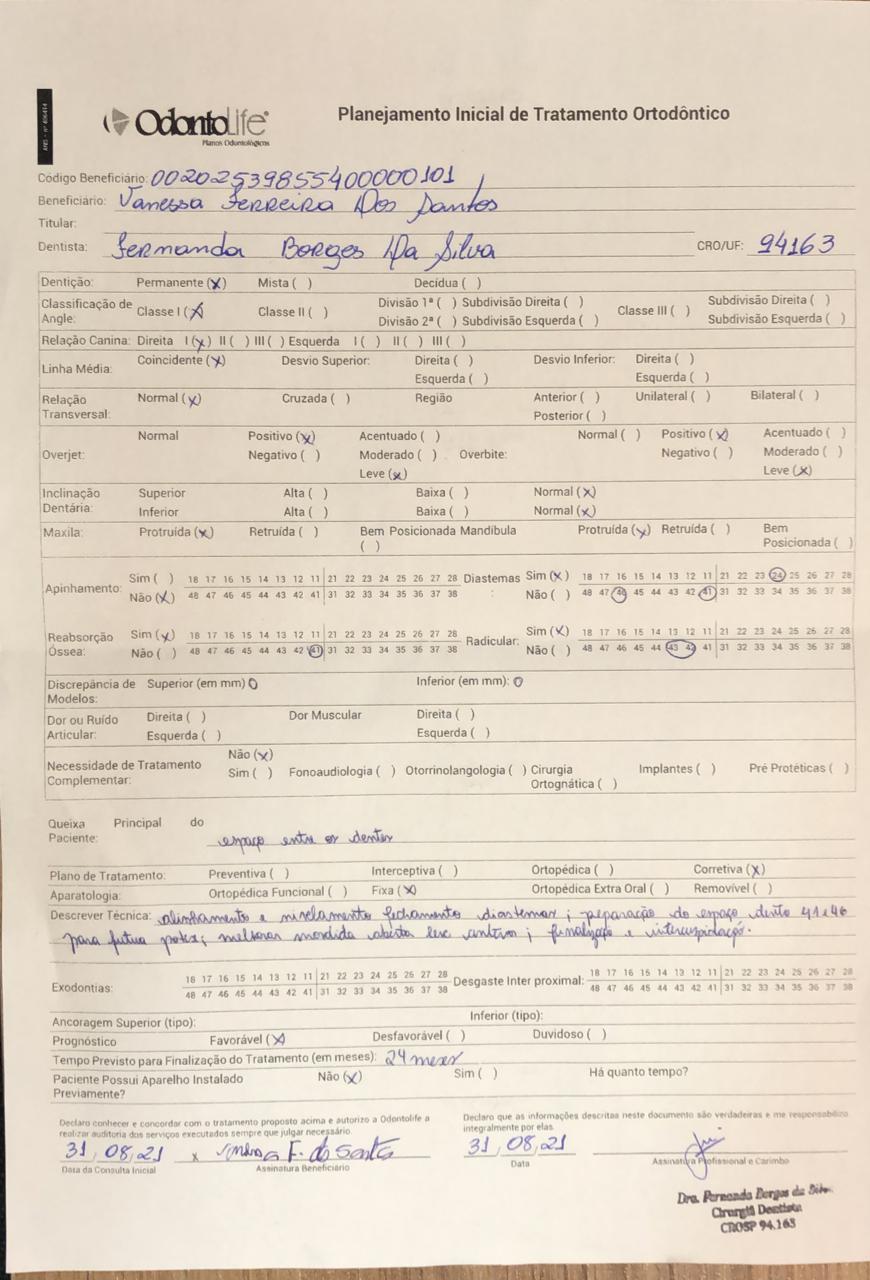 ANS - nº 406414
OdontoLife®
Planos Odontológicos
Planejamento Inicial de Tratamento Ortodôntico
Código Beneficiário: 00202539855400000101
Beneficiário: Vanessa Ferreira Dos Santos
Titular:
Dentista: Fernanda Borges Da Silva CRO/UF: 94163
Dentição: Permanente (x) Mista ( ) Decídua ( )
Classificação de Angle: Classe I (x) Classe II ( ) Divisão 1ª ( ) Subdivisão Direita ( ) Classe III ( ) Subdivisão Direita ( )
Divisão 2ª ( ) Subdivisão Esquerda ( ) Subdivisão Esquerda ( )
Relação Canina: Direita I (x) II ( ) III ( ) Esquerda I ( ) II ( ) III ( )
Linha Média: Coincidente (x) Desvio Superior: Direita ( ) Desvio Inferior: Direita ( )
Esquerda ( ) Esquerda ( )
Relação Transversal: Normal (x) Cruzada ( ) Região Anterior ( ) Unilateral ( ) Bilateral ( )
Posterior ( )
Normal Positivo (x) Acentuado ( ) Normal ( ) Positivo (x) Acentuado ( )
Overjet: Negativo ( ) Moderado ( ) Overbite: Negativo ( ) Moderado ( )
Leve (x) Leve (x)
Inclinação Dentária: Superior Alta ( ) Baixa ( ) Normal (x)
Inferior Alta ( ) Baixa ( ) Normal (x)
Maxila: Protruída (x) Retruída ( ) Bem Posicionada ( ) Mandíbula Protruída (x) Retruída ( ) Bem Posicionada ( )
Apinhamento: Sim ( ) 18 17 16 15 14 13 12 11 21 22 23 24 25 26 27 28 Diastemas : Sim (x) 18 17 16 15 14 13 12 11 21 22 23 24 25 26 27 28
Não (x) 48 47 46 45 44 43 42 41 31 32 33 34 35 36 37 38 Não ( ) 48 47 46 45 44 43 42 41 31 32 33 34 35 36 37 38
Reabsorção Óssea: Sim (x) 18 17 16 15 14 13 12 11 21 22 23 24 25 26 27 28 Radicular: Sim (x) 18 17 16 15 14 13 12 11 21 22 23 24 25 26 27 28
Não ( ) 48 47 46 45 44 43 42 41 31 32 33 34 35 36 37 38 Não ( ) 48 47 46 45 44 43 42 41 31 32 33 34 35 36 37 38
Discrepância de Modelos: Superior (em mm) 0 Inferior (em mm): 0
Dor ou Ruído Articular: Direita ( ) Dor Muscular Direita ( )
Esquerda ( ) Esquerda ( )
Necessidade de Tratamento Complementar: Não (x)
Sim ( ) Fonoaudiologia ( ) Otorrinolangologia ( ) Cirurgia Ortognática ( ) Implantes ( ) Pré Protéticas ( )
Queixa Principal do Paciente: espaço entre os dentes
Plano de Tratamento: Preventiva ( ) Interceptiva ( ) Ortopédica ( ) Corretiva (x)
Aparatologia: Ortopédica Funcional ( ) Fixa (x) Ortopédica Extra Oral ( ) Removível ( )
Descrever Técnica: alinhamento e nivelamento fechamento diastemas; do espaço dente 41 e 46
para futura melhorar mordida aberta finalização e intercuspidação.
Exodontias: 18 17 16 15 14 13 12 11 21 22 23 24 25 26 27 28 Desgaste Inter proximal: 18 17 16 15 14 13 12 11 21 22 23 24 25 26 27 28
48 47 46 45 44 43 42 41 31 32 33 34 35 36 37 38 48 47 46 45 44 43 42 41 31 32 33 34 35 36 37 38
Ancoragem Superior (tipo): Inferior (tipo):
Prognóstico Favorável (x) Desfavorável ( ) Duvidoso ( )
Tempo Previsto para Finalização do Tratamento (em meses): 24 meses
Paciente Possui Aparelho Instalado Previamente? Não (x) Sim ( ) Há quanto tempo?
Declaro conhecer e concordar com o tratamento proposto acima e autorizo a Odontolife a
realizar auditoria dos serviços executados sempre que julgar necessário.
Declaro que as informações descritas neste documento são verdadeiras e me responsabilizo
integralmente por elas.
31, 08, 21 x F. do Santos 31, 08, 21
Data da Consulta Inicial Assinatura Beneficiário Data Assinatura Profissional e Carimbo
Dra. Fernanda Borges da Silva
Cirurgiã Dentista
CROSP 94.163